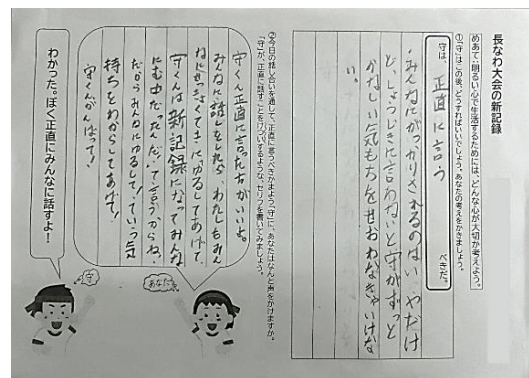 長なわ大会の新記録
めあて：明るい心で生活するためには、どんな心が大切か考えよう。
①「守」はこの後、どうすればいいでしょう。あなたの考えをかきましょう。
守は、
正直に言う
べきだ。
みんなにがっかりされるのはいやだけ
ど、しょうじきに言わないと守がずっと
かなしい気もちをせおわなきゃいけな
い。
②今日の話し合いを通して、正直に言うべきかまよう「守」に、あなたはなんと声をかけますか。
「守」が、正直に話すことをけついするような、セリフを書いてみましょう。
守くん正直に言った方がいいよ。
みんなに話をしたら、わたしもみん
なに
ゆるしてあげて、
守くんは新記録になってみんな
にむ中だったんだ！て言うからね、
だからみんなにゆるして！、ていう気
持ちをわからしてあげて！
守くんがんばって！
あなた
守
わかった。ぼく正直にみんなに話すよ！